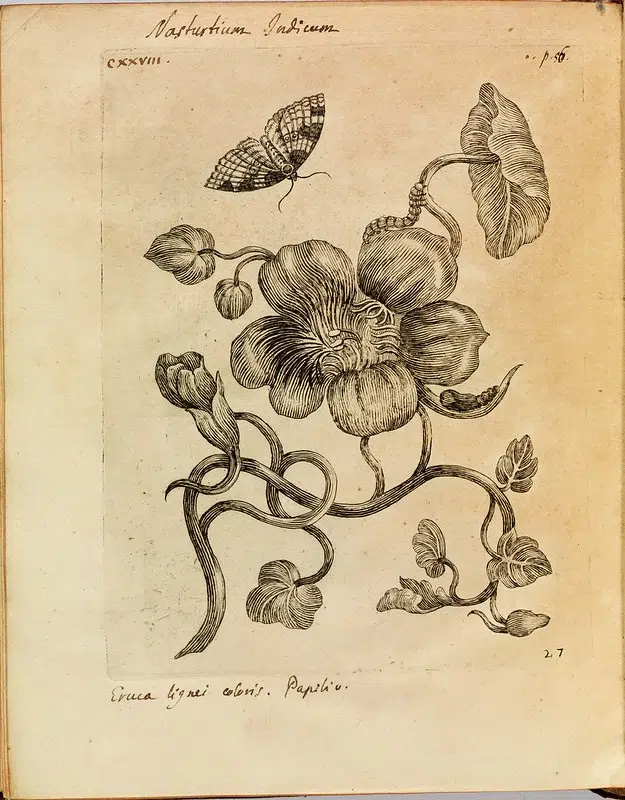 Nasturtium Indicum
CXXVIII.
p. 56.
27
Eruca lignei coloris. Papilio.